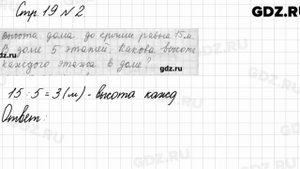 Стр. 19 № 2
GDZ.RU
Высота дома до крыши равна 15 м.
В доме 5 этажей. Какова высота
каждого этажа в доме?
15 : 5 = 3 (м) - высота кажд
Ответ:
GDZ.RU